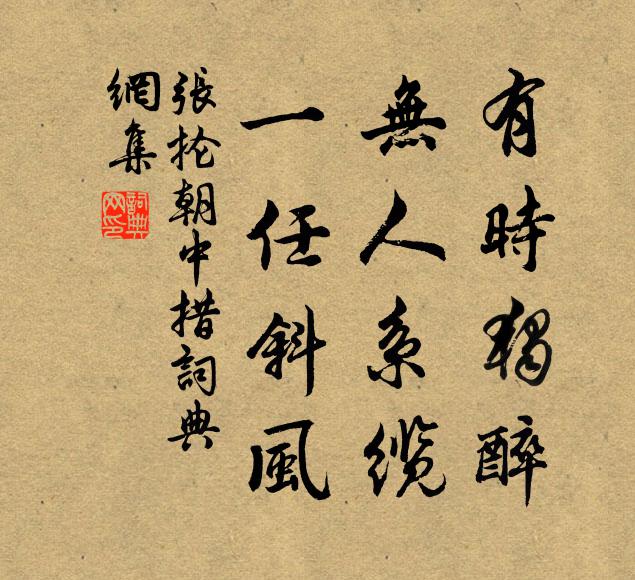 有時獨醉
無人系纜
一任斜風
張抡朝中措詞典
網集
詞典網印